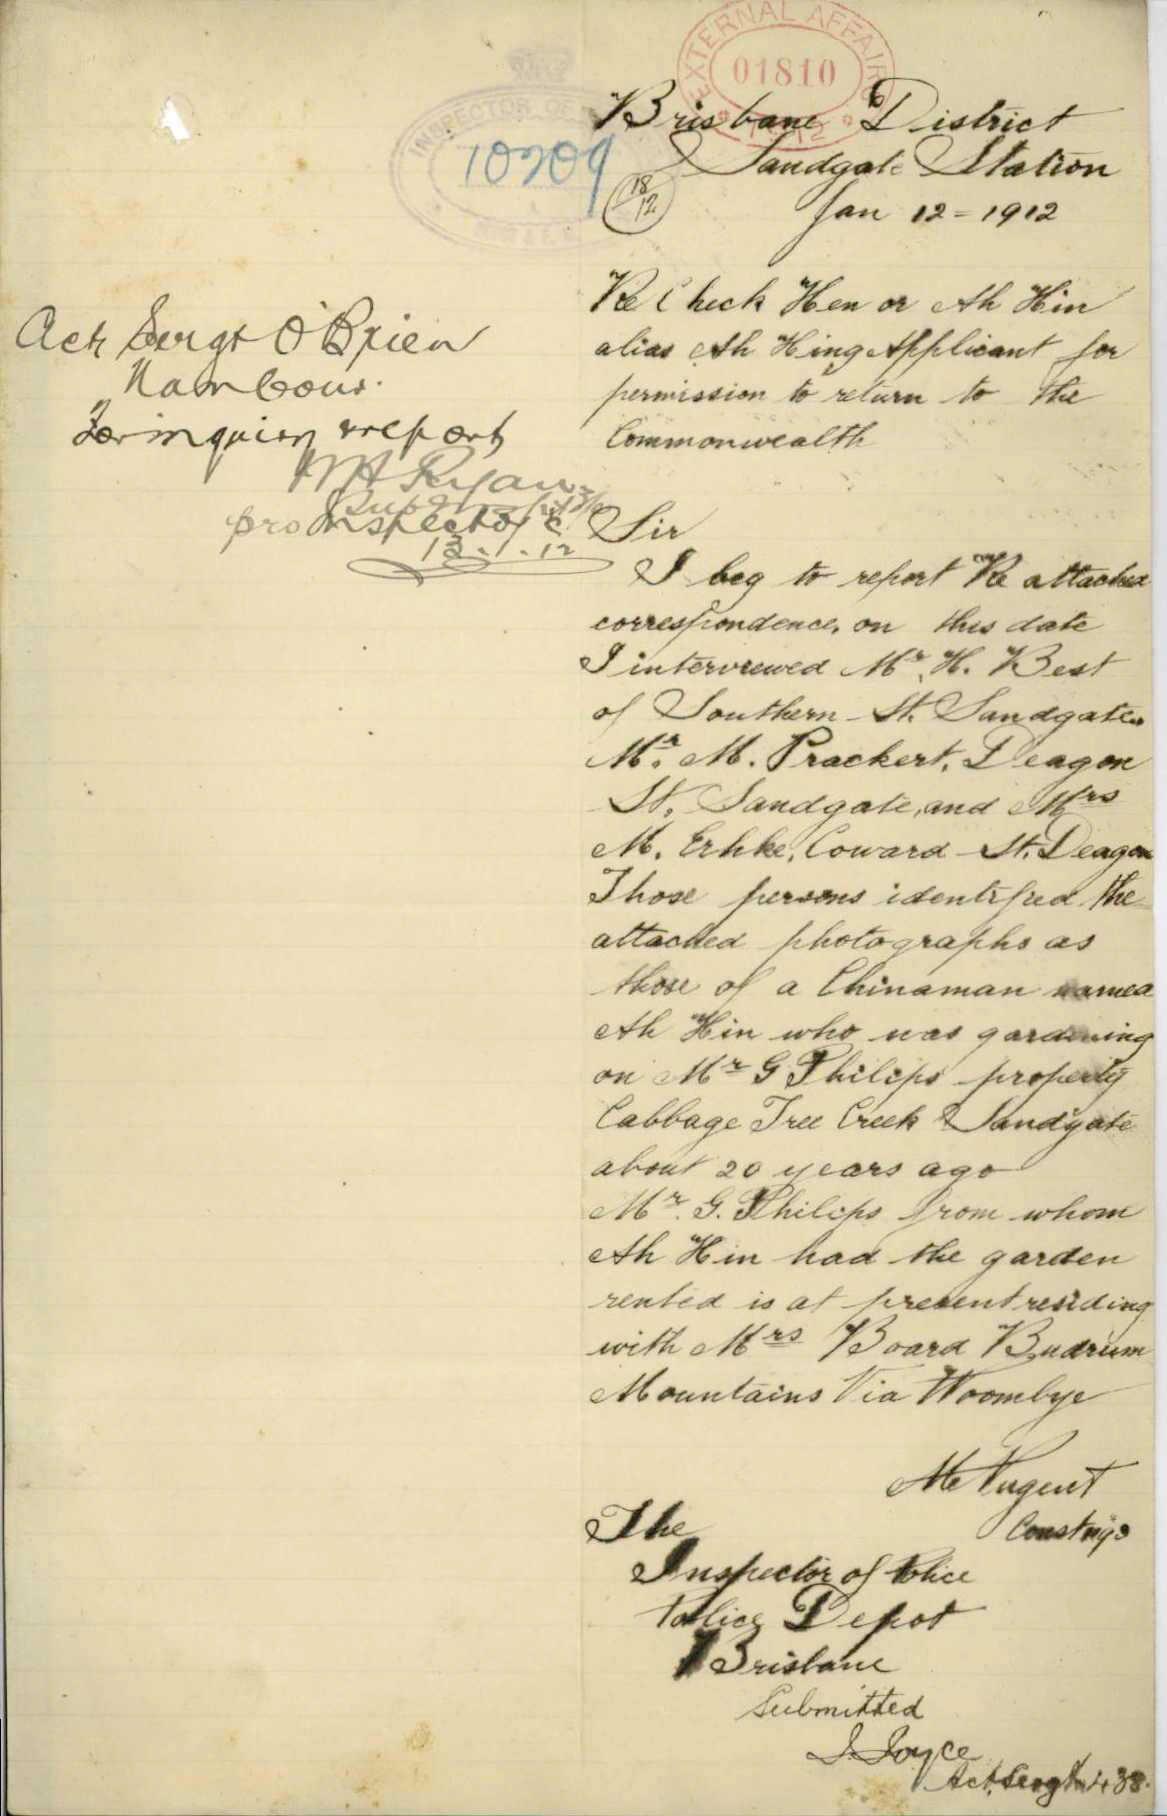 EXTERNAL AFFAIRS
01810
INSPECTOR OF
10209
18/12
Brisbane District
Sandgate Station
Jan 12 = 1912
Re Check Hen or Ah Hin
alias Ah Hing Applicant for
permission to return to the
Commonwealth
Actg Sergt O'Brien
Nambour.
For inquiry & report
W A Ryan
pro Inspector
13.1.12
Sir
I beg to report Re attached
correspondence, on this date
I interviewed Mr. H. Best
of Southern St. Sandgate.
Mr. M. Prackert, Deagon
St. Sandgate, and Mrs
M. Erhke, Coward St. Deagon
Those persons identified the
attached photographs as
those of a Chinaman named
Ah Hin who was gardening
on Mr G Philips property
Cabbage Tree Creek Sandgate
about 20 years ago
Mr. G. Philips from whom
Ah Hin had the garden
rented is at present residing
with Mrs Board Budrum
Mountains Via Woombye
M Nugent
Const
The
Inspector of Police
Police Depot
Brisbane
Submitted
J. Joyce
Act. Sergt 438.